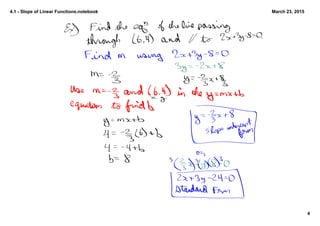 4.1 - Slope of Linear Functions.notebook
March 23, 2015
Ex) Find the eqn of the line passing
through (6,4) and // to 2x+3y-8=0
Find m using 2x+3y-8=0
3y = -2x+8
m = -2/3
y = -2/3 x + 8/3
Use m = -2/3 and (6,4) in the y=mx+b
x y
equation to find b
y = mx+b
4 = -2/3 (6) + b
4 = -4+b
b = 8
y = -2/3 x + 8
slope intercept
form
or
2x+3y-24=0
Standard Form
4